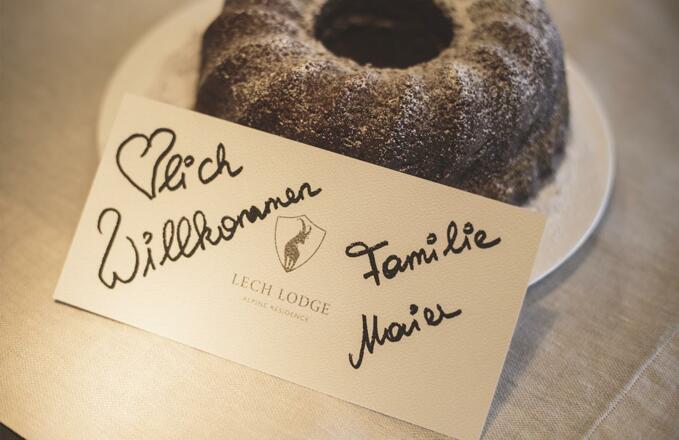 ♡lich
Willkommen
LECH LODGE
ALPINE RESIDENCE
Familie
Maier